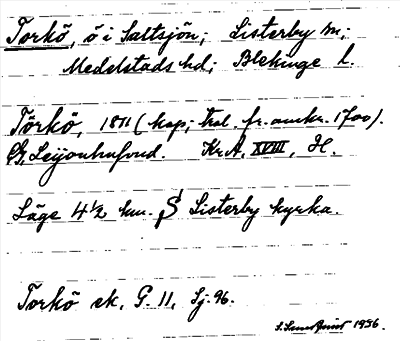 Torkö, ö i Saltsjön; Listerby sn;
Medelstads hd; Blekinge l.
Törkö, 1811 (kop; tral. fr. omkr. 1700).
G. Leijonhufvud. Kr.A. XVIII, H.
Läge 4½ km. S Listerby kyrka.
Torkö ek, G. 11, Sj. 96.
1956.